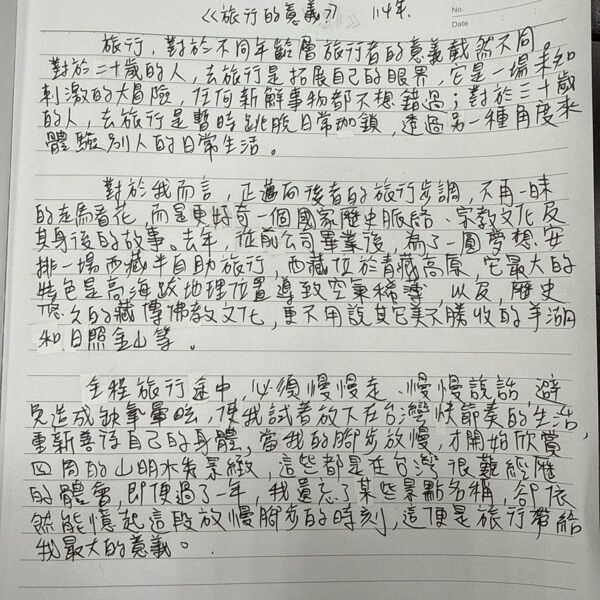 《旅行的意義》 114年
No.
Date
旅行，對於不同年齡層旅行者的意義截然不同。
對於二十歲的人，去旅行是拓展自己的眼界，它是一場未知
刺激的大冒險，任何新鮮事物都不想錯過；對於三十歲
的人，去旅行是暫時跳脫日常枷鎖，透過另一種角度來
體驗別人的日常生活。
對於我而言，正邁向後者的旅行步調，不再一昧
的走馬看花，而是更好奇一個國家歷史脈絡、宗教文化及
其身後的故事。去年，從前公司畢業後，為了一圓夢想，安
排一場西藏半自助旅行，西藏位於青藏高原，它最大的
特色是高海跋地理位置導致空氣稀薄，以及，歷史
悠久的藏傳佛教文化，更不用說其它美不勝收的羊湖
和日照金山等。
全程旅行途中，必須慢慢走、慢慢說話，避
免造成缺氧暈眩，使我試著放下在台灣快節奏的生活，
重新善待自己的身體，當我的腳步放慢，才開始欣賞
四周的山明水秀景緻，這些都是在台灣很難經歷
的體會，即便過了一年，我遺忘了某些景點名稱，卻依
然能憶起這段放慢腳步的時刻，這便是旅行帶給
我最大的意義。